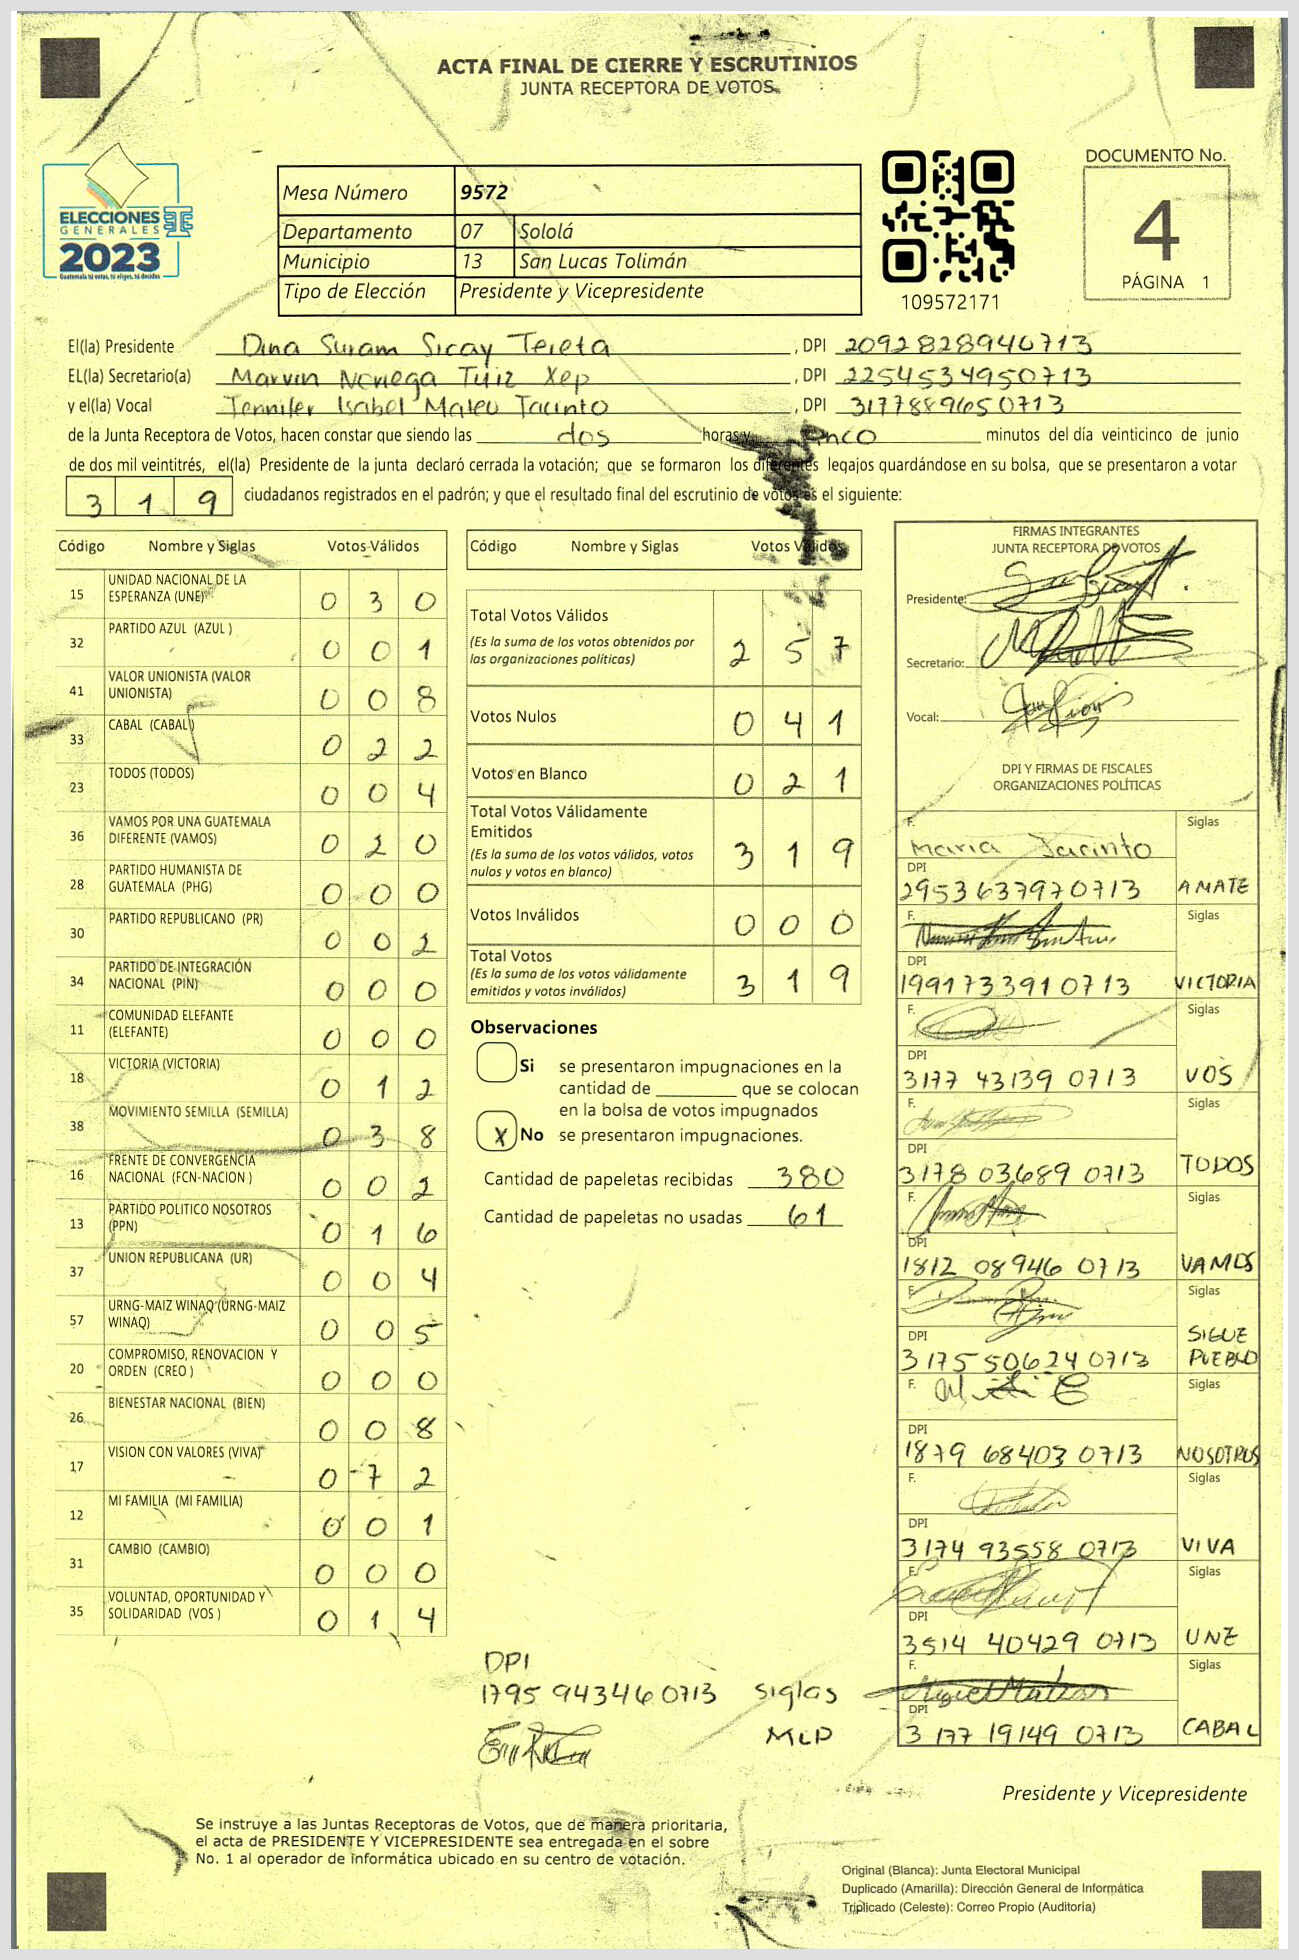 ACTA FINAL DE CIERRE Y ESCRUTINIOS
JUNTA RECEPTORA DE VOTOS
ELECCIONES
GENERALES
2023
Guatemala tú votas, tú eliges, tú decides
Mesa Número 9572
Departamento 07 Sololá
Municipio 13 San Lucas Tolimán
Tipo de Elección Presidente y Vicepresidente
109572171
DOCUMENTO No.
4
PÁGINA 1
El(la) Presidente Dina Suram Sicay Tereta, DPI 2092828940713
EL(la) Secretario(a) Marvin Noriega Tuiz Xep, DPI 2254534950713
y el(la) Vocal Jennifer Isabel Mateu Jacinto, DPI 3177889650713
de la Junta Receptora de Votos, hacen constar que siendo las dos horas y minutos del día veinticinco de junio
de dos mil veintitrés, el(la) Presidente de la junta declaró cerrada la votación; que se formaron los diferentes legajos guardándose en su bolsa, que se presentaron a votar
3 1 9 ciudadanos registrados en el padrón; y que el resultado final del escrutinio de votos es el siguiente:
Código Nombre y Siglas Votos Válidos
15 UNIDAD NACIONAL DE LA ESPERANZA (UNE) 0 3 0
32 PARTIDO AZUL (AZUL ) 0 0 1
41 VALOR UNIONISTA (VALOR UNIONISTA) 0 0 8
33 CABAL (CABAL) 0 2 2
23 TODOS (TODOS) 0 0 4
36 VAMOS POR UNA GUATEMALA DIFERENTE (VAMOS) 0 2 0
28 PARTIDO HUMANISTA DE GUATEMALA (PHG) 0 0 0
30 PARTIDO REPUBLICANO (PR) 0 0 2
34 PARTIDO DE INTEGRACIÓN NACIONAL (PIN) 0 0 0
11 COMUNIDAD ELEFANTE (ELEFANTE) 0 0 0
18 VICTORIA (VICTORIA) 0 1 2
38 MOVIMIENTO SEMILLA (SEMILLA) 0 3 8
16 FRENTE DE CONVERGENCIA NACIONAL (FCN-NACION ) 0 0 2
13 PARTIDO POLITICO NOSOTROS (PPN) 0 1 6
37 UNION REPUBLICANA (UR) 0 0 4
57 URNG-MAIZ WINAQ (URNG-MAIZ WINAQ) 0 0 5
20 COMPROMISO, RENOVACION Y ORDEN (CREO ) 0 0 0
26 BIENESTAR NACIONAL (BIEN) 0 0 8
17 VISION CON VALORES (VIVA) 0 7 2
12 MI FAMILIA (MI FAMILIA) 0 0 1
31 CAMBIO (CAMBIO) 0 0 0
35 VOLUNTAD, OPORTUNIDAD Y SOLIDARIDAD (VOS ) 0 1 4
Código Nombre y Siglas Votos Válidos
Total Votos Válidos 2 5 7
(Es la suma de los votos obtenidos por
las organizaciones políticas)
Votos Nulos 0 4 1
Votos en Blanco 0 2 1
Total Votos Válidamente
Emitidos 3 1 9
(Es la suma de los votos válidos, votos
nulos y votos en blanco)
Votos Inválidos 0 0 0
Total Votos 3 1 9
(Es la suma de los votos válidamente
emitidos y votos inválidos)
Observaciones
Si se presentaron impugnaciones en la
cantidad de ________ que se colocan
en la bolsa de votos impugnados
X No se presentaron impugnaciones.
Cantidad de papeletas recibidas 380
Cantidad de papeletas no usadas 61
DPI
1795 94346 0713 Siglas
MLP
FIRMAS INTEGRANTES
JUNTA RECEPTORA DE VOTOS
Presidente:
Secretario:
Vocal:
DPI Y FIRMAS DE FISCALES
ORGANIZACIONES POLÍTICAS
F. Maria Jacinto Siglas
DPI
2953637970713 AMATE
F. Siglas
DPI
1991733910713 VICTORIA
F. Siglas
DPI
3177 43139 0713 VOS
F. Siglas
DPI
3178 03689 0713 TODOS
F. Siglas
DPI
1812 08946 0713 VAMOS
F. Siglas
DPI
3175 50624 0713 SIGUE PUEBLO
F. Siglas
DPI
1879 68403 0713 NOSOTROS
F. Siglas
DPI
3174 93558 0713 VIVA
F. Siglas
DPI
3514 40429 0713 UNE
F. Siglas
DPI
3177 19149 0713 CABAL
Presidente y Vicepresidente
Se instruye a las Juntas Receptoras de Votos, que de manera prioritaria,
el acta de PRESIDENTE Y VICEPRESIDENTE sea entregada en el sobre
No. 1 al operador de informática ubicado en su centro de votación.
Original (Blanca): Junta Electoral Municipal
Duplicado (Amarilla): Dirección General de Informática
Triplicado (Celeste): Correo Propio (Auditoría)